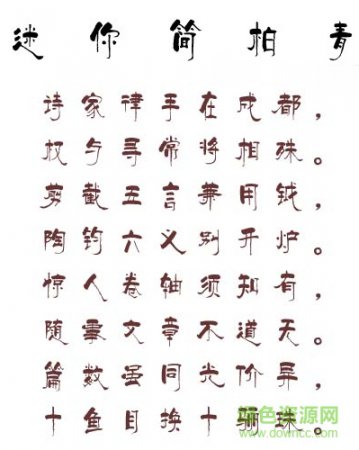 迷你简柏青
诗家律手在成都，
权与寻常将相殊。
剪截五言兼用钺，
陶钧六义别开炉。
惊人卷轴须知有，
随事文章不道无。
篇数虽同光价异，
十鱼目换十骊珠。
绿色资源网
www.downcc.com